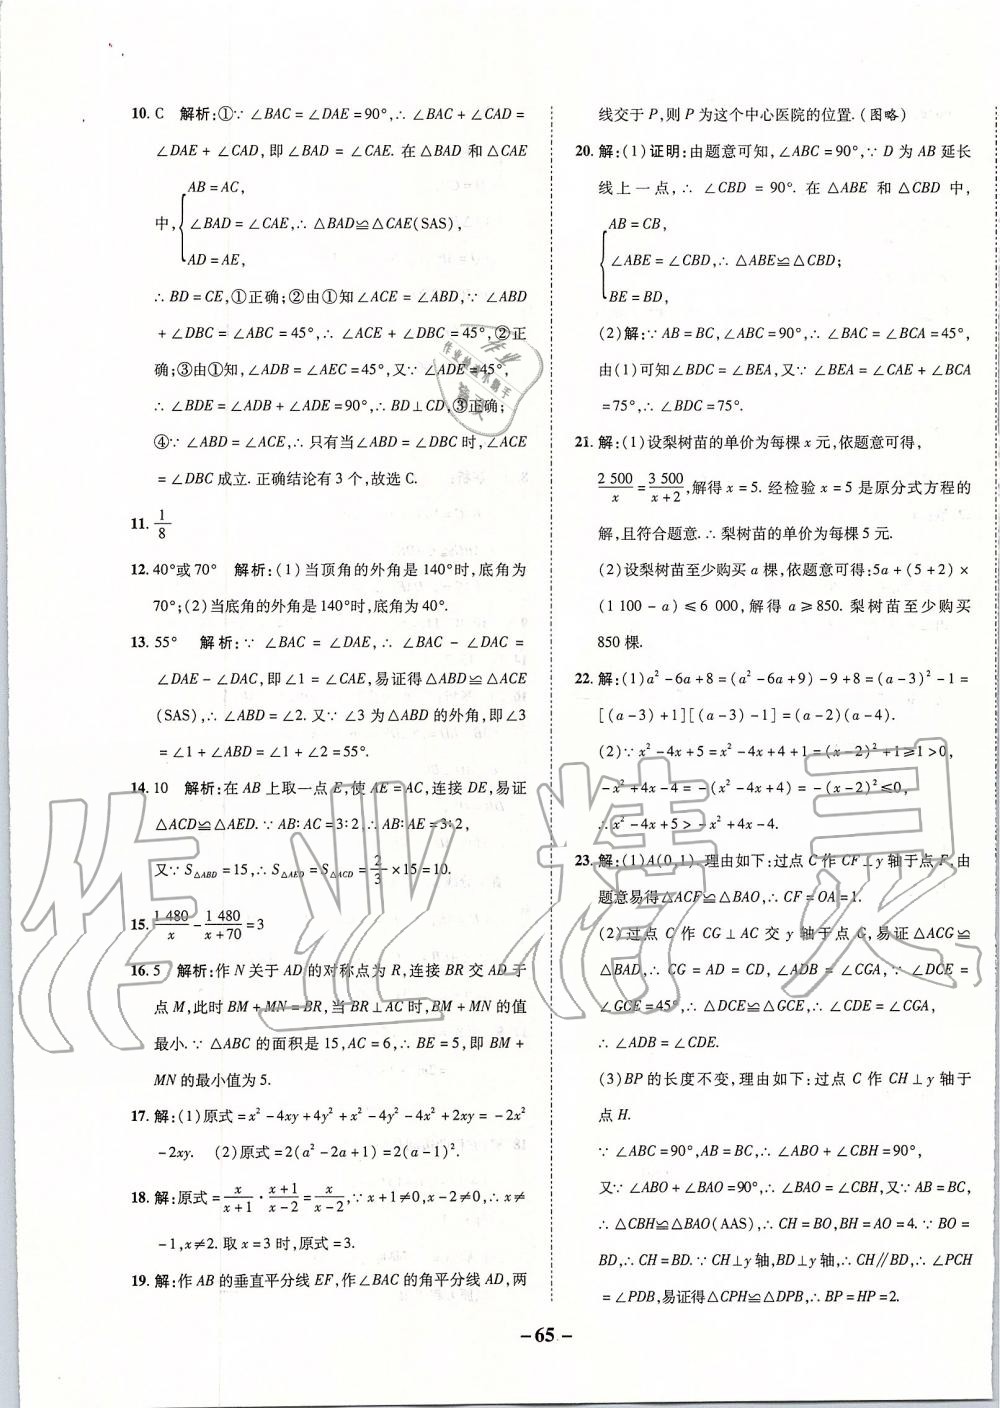 10. C 解析:①∵ ∠BAC = ∠DAE = 90°,∴ ∠BAC + ∠CAD =
∠DAE + ∠CAD,即 ∠BAD = ∠CAE. 在 △BAD 和 △CAE
中, { AB = AC,
∠BAD = ∠CAE,∴ △BAD≌△CAE(SAS),
AD = AE,
∴ BD = CE,①正确;②由①知∠ACE = ∠ABD,∵ ∠ABD
+ ∠DBC = ∠ABC = 45°,∴ ∠ACE + ∠DBC = 45°,②正
确;③由①知,∠ADB = ∠AEC = 45°,又∵ ∠ADE = 45°,
∴ ∠BDE = ∠ADB + ∠ADE = 90°,∴ BD⊥CD,③正确;
④∵ ∠ABD = ∠ACE,∴ 只有当∠ABD = ∠DBC 时,∠ACE
= ∠DBC 成立. 正确结论有 3 个,故选 C.
11. 1/8
12. 40°或70° 解析:(1)当顶角的外角是140°时,底角为
70°;(2)当底角的外角是140°时,底角为40°.
13. 55° 解析:∵ ∠BAC = ∠DAE,∴ ∠BAC - ∠DAC =
∠DAE - ∠DAC,即∠1 = ∠CAE,易证得△ABD≌△ACE
(SAS),∴ ∠ABD = ∠2. 又∵ ∠3 为△ABD 的外角,即∠3
= ∠1 + ∠ABD = ∠1 + ∠2 = 55°.
14. 10 解析:在 AB 上取一点 E,使 AE = AC,连接 DE,易证
△ACD≌△AED. ∵ AB∶AC = 3∶2,∴ AB∶AE = 3∶2,
又∵ S△ABD = 15,∴ S△AED = S△ACD = 2/3 × 15 = 10.
15. 1 480/x - 1 480/(x+70) = 3
16. 5 解析:作 N 关于 AD 的对称点为 R,连接 BR 交 AD 于
点 M,此时 BM + MN = BR,当 BR⊥AC 时,BM + MN 的值
最小. ∵ △ABC 的面积是 15,AC = 6,∴ BE = 5,即 BM +
MN 的最小值为 5.
17. 解:(1)原式 = x² - 4xy + 4y² + x² - 4x² - 4y² + 2xy = - 2x²
- 2xy. (2)原式 = 2(a² - 2a + 1) = 2(a - 1)².
18. 解:原式 = x/(x+1) · (x+1)/(x-2) = x/(x-2),∵ x + 1≠0,x - 2≠0,∴ x≠
- 1,x≠2. 取 x = 3 时,原式 = 3.
19. 解:作 AB 的垂直平分线 EF,作∠BAC 的角平分线 AD,两
线交于 P,则 P 为这个中心医院的位置.(图略)
20. 解:(1)证明:由题意可知,∠ABC = 90°,∵ D 为 AB 延长
线上一点,∴ ∠CBD = 90°. 在 △ABE 和 △CBD 中,
{ AB = CB,
∠ABE = ∠CBD,∴ △ABE≌△CBD;
BE = BD,
(2)解:∵ AB = BC,∠ABC = 90°,∴ ∠BAC = ∠BCA = 45°,
由(1)可知∠BDC = ∠BEA,又∵ ∠BEA = ∠CAE + ∠BCA
= 75°,∴ ∠BDC = 75°.
21. 解:(1)设梨树苗的单价为每棵 x 元,依题意可得,
2 500/x = 3 500/(x+2),解得 x = 5. 经检验 x = 5 是原分式方程的
解,且符合题意. ∴ 梨树苗的单价为每棵 5 元.
(2)设梨树苗至少购买 a 棵,依题意可得:5a + (5 + 2) ×
(1 100 - a)≤6 000,解得 a≥850. 梨树苗至少购买
850 棵.
22. 解:(1)a² - 6a + 8 = (a² - 6a + 9) - 9 + 8 = (a - 3)² - 1 =
[(a - 3) + 1][(a - 3) - 1] = (a - 2)(a - 4).
(2)∵ x² - 4x + 5 = x² - 4x + 4 + 1 = (x - 2)² + 1≥1 > 0,
- x² + 4x - 4 = - (x² - 4x + 4) = - (x - 2)²≤0,
∴ x² - 4x + 5 > - x² + 4x - 4.
23. 解:(1)A(0,1). 理由如下:过点 C 作 CF⊥y 轴于点 F,由
题意易得△ACF≌△BAO,∴ CF = OA = 1.
(2)过点 C 作 CG⊥AC 交 y 轴于点 G,易证△ACG≌
△BAD,∴ CG = AD = CD,∠ADB = ∠CGA,∵ ∠DCE =
∠GCE = 45°,∴ △DCE≌△GCE,∴ ∠CDE = ∠CGA,
∴ ∠ADB = ∠CDE.
(3)BP 的长度不变,理由如下:过点 C 作 CH⊥y 轴于
点 H.
∵ ∠ABC = 90°,AB = BC,∴ ∠ABO + ∠CBH = 90°,
又∵ ∠ABO + ∠BAO = 90°,∴ ∠BAO = ∠CBH,又∵ AB = BC,
∴ △CBH≌△BAO(AAS),∴ CH = BO,BH = AO = 4. ∵ BO =
BD,∴ CH = BD. ∵ CH⊥y 轴,BD⊥y 轴,∴ CH∥BD,∴ ∠PCH
= ∠PDB,易证得△CPH≌△DPB,∴ BP = HP = 2.
- 65 -
作业精灵